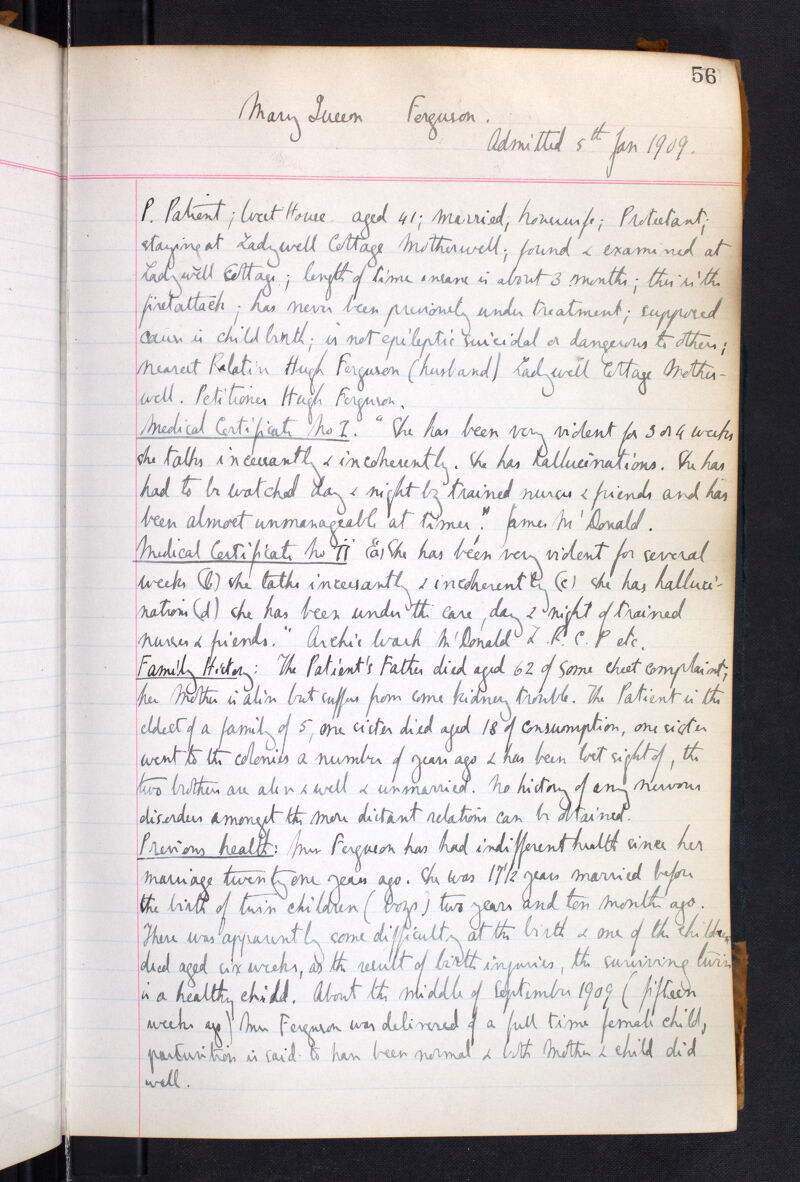 56
Mary Queen Ferguson.
Admitted 5th Jan 1909.
P. Patient; West House. aged 41; married, housewife; Protestant;
staying at Ladywell Cottage Motherwell; found & examined at
Ladywell Cottage; length of time insane is about 3 months; this is the
first attack; has never been previously under treatment; supposed
cause is childbirth; is not epileptic suicidal or dangerous to others;
nearest Relative Hugh Ferguson (husband) Ladywell Cottage Mother-
well. Petitioner Hugh Ferguson.
Medical Certificate No I. "She has been very violent for 3 or 4 weeks
she talks incessantly & incoherently. She has Hallucinations. She has
had to be watched day & night by trained nurses & friends and has
been almost unmanageable at times." James McDonald.
Medical Certificate No II "(a) She has been very violent for several
weeks (b) she talks incessantly & incoherently (c) she has halluci-
nations (d) she has been under the care, day & night of trained
nurses & friends." Archie McDonald L.R.C.P etc.
Family History: The Patient's Father died aged 62 of some chest complaint;
her Mother is alive but suffers from some kidney trouble. The Patient is the
eldest of a family of 5, one sister died aged 18 of consuomption, one sister
went to the colonies a number of years ago & has been lost sight of, the
two brothers are alive & well & unmarried. No history of any nervous
disorders amongst the more distant relations can be obtained.
Previous health: Mrs Ferguson has had indifferent health since her
marriage twenty one years ago. She was 17 1/2 years married before
the birth of twin children (boys) two years and ten months ago.
There was apparently some difficulty at the birth & one of the children
died aged six weeks, as the result of birth injuries, the surviving twin
is a healthy child. About the middle of September 1909 (fifteen
weeks ago) Mrs Ferguson was delivered of a full time female child,
parturition is said to have been normal & both Mother & child did
well.